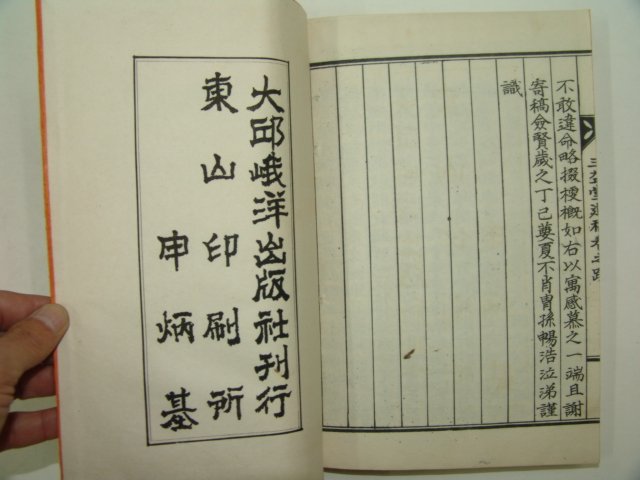 不敢違命略掇梗概如右以寓感慕之一端且謝
寄稿僉賢歲之丁巳夢夏不肖胄孫暢浩泣涕謹
識
大邱峨洋出版社刊行
東山印刷所
申炳基